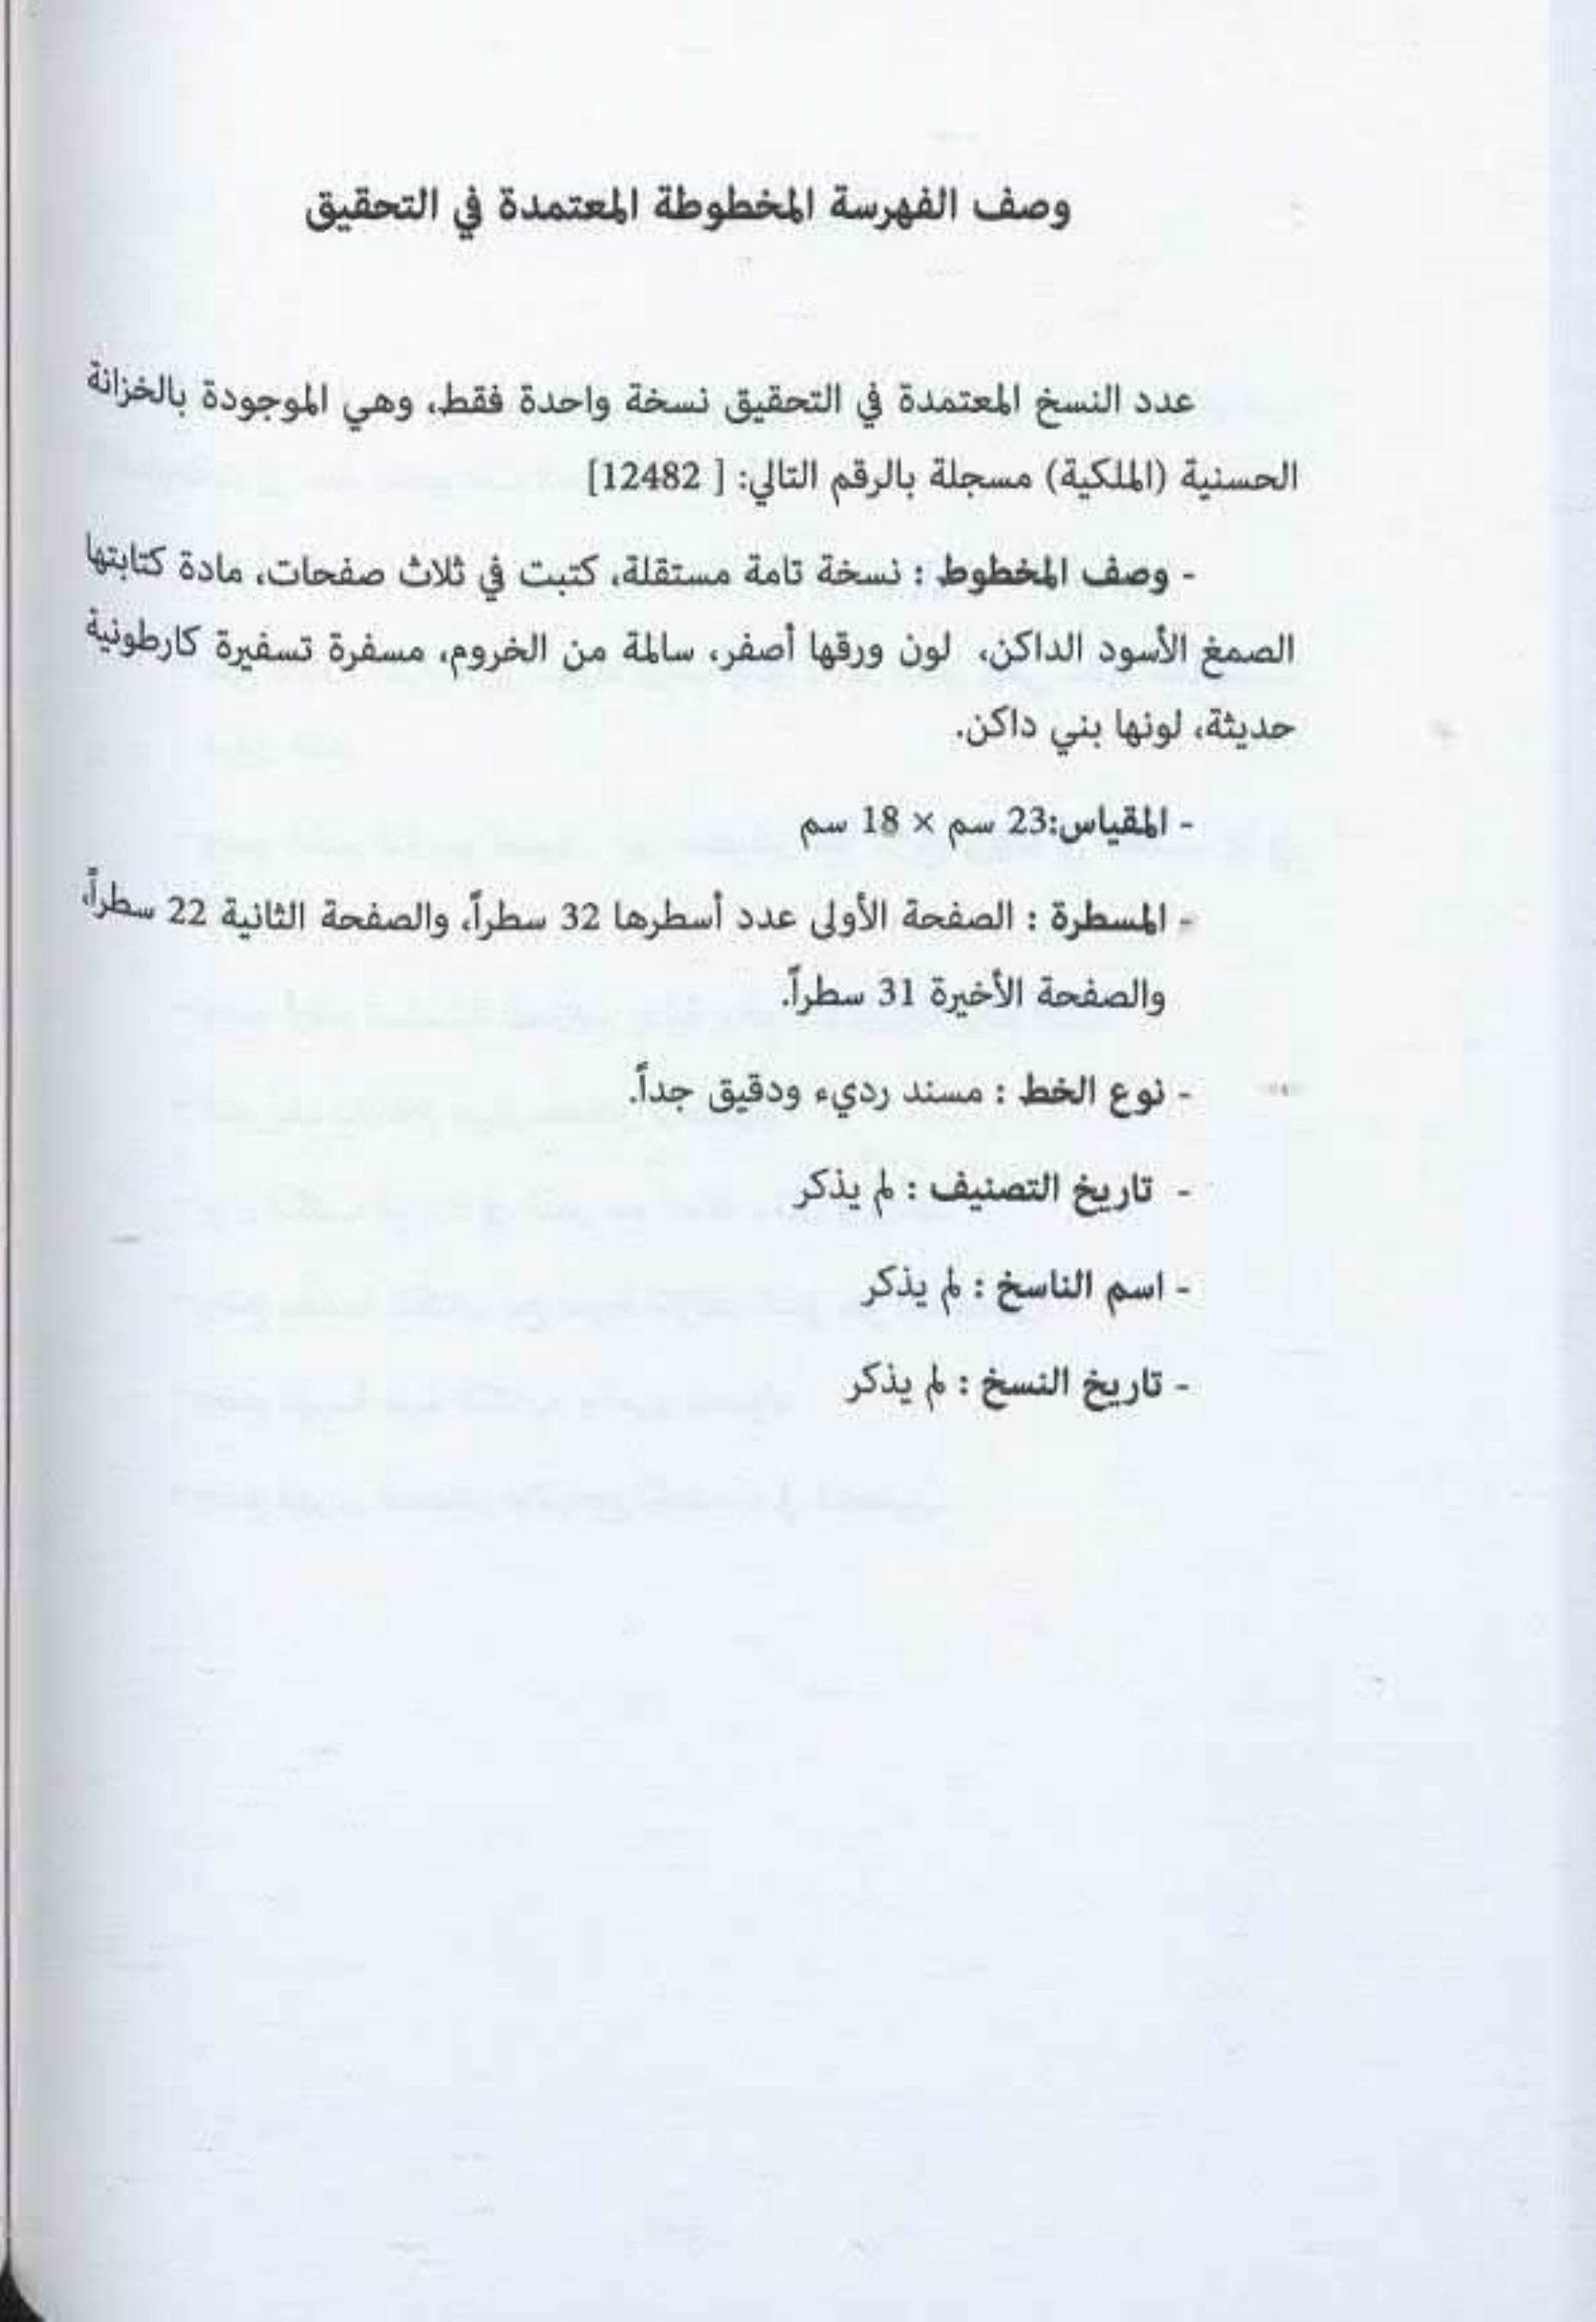 وصف الفهرسة المخطوطة المعتمدة في التحقيق
عدد النسخ المعتمدة في التحقيق نسخة واحدة فقط، وهي الموجودة بالخزانة
الحسنية (الملكية) مسجلة بالرقم التالي: [ 12482]
- وصف المخطوط : نسخة تامة مستقلة، كتبت في ثلاث صفحات، مادة كتابتها
الصمغ الأسود الداكن، لون ورقها أصفر، سالمة من الخروم، مسفرة تسفيرة كارطونية
حديثة، لونها بني داكن.
- المقياس:23 سم × 18 سم
- المسطرة : الصفحة الأولى عدد أسطرها 32 سطراً، والصفحة الثانية 22 سطراً،
والصفحة الأخيرة 31 سطراً.
- نوع الخط : مسند رديء ودقيق جداً.
- تاريخ التصنيف : لم يذكر
- اسم الناسخ : لم يذكر
- تاريخ النسخ : لم يذكر